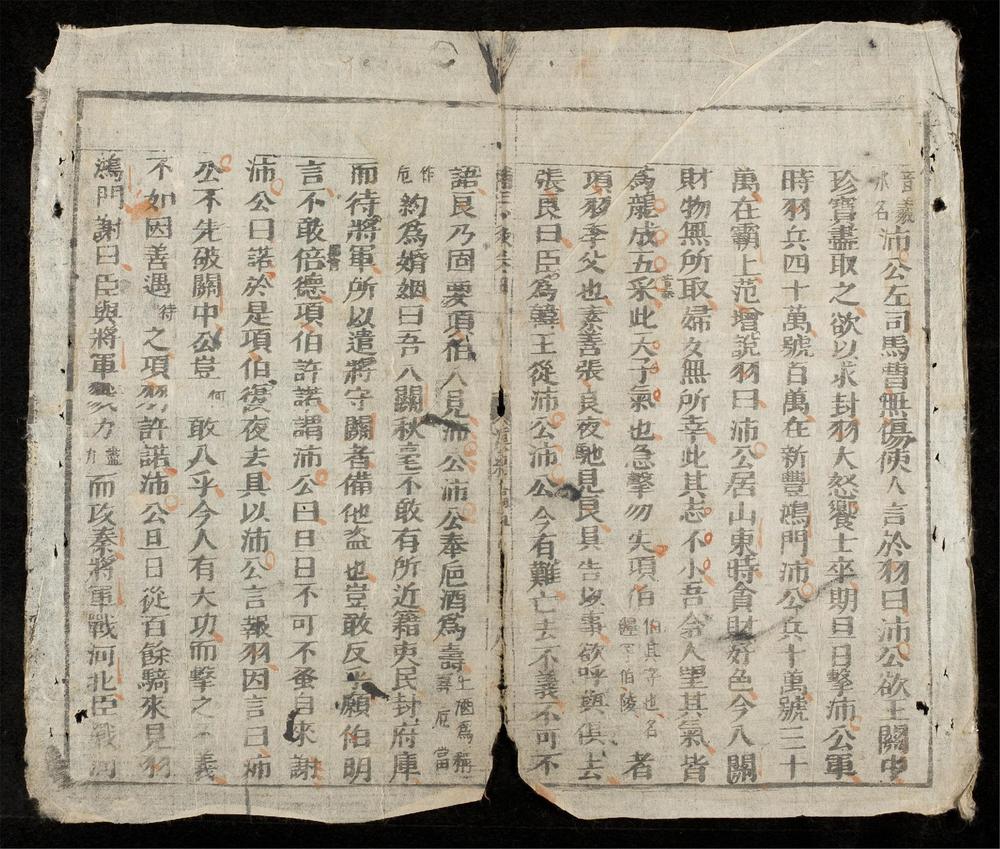 音義
水名沛公左司馬曹無傷使人言於羽曰沛公欲王關中
珍寶盡取之欲以求封羽大怒饗士卒期旦日擊沛公軍
時羽兵四十萬號百萬在新豐鴻門沛公兵十萬號二十
萬在霸上范增說羽曰沛公居山東時貪財好色今入關
財物無所取婦女無所幸此其志不小吾令人望其氣皆
為龍成五采此天子氣也急擊勿失項伯伯其字也名纏 伯陵者
項羽季父也素善張良夜馳見良具告以事欲呼與俱去
張良曰臣為韓王從沛公沛公今有難亡去不義不可不
語良乃固要項伯入見沛公沛公奉巵酒為壽上酒為稱壽 巵 當
作巵約為婚姻曰吾入關秋毫不敢有所近籍吏民封府庫
而待將軍所以遣將守關者備他盜也豈敢反乎願伯明
言不敢倍德項伯許諾謂沛公曰旦日不可不蚤自來謝
沛公曰諾於是項伯復夜去具以沛公言報羽因言曰沛
公不先破關中公豈何敢入乎今人有大功而擊之不義
不如因善遇待之項羽許諾沛公旦日從百餘騎來見羽
鴻門謝曰臣與將軍力而攻秦將軍戰河北臣戰河